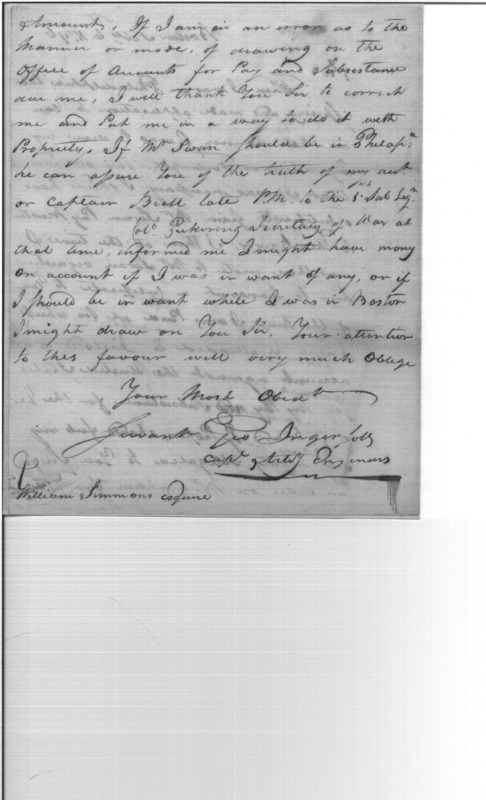 Amounts, If I am in an error as to the
Manner or mode, of drawing on the
Office of Accounts for Pay and Subsistance
due me, I will thank You Sir to correct
me and Put me in a way to do it with
Propriety, If Mr Swan should be in Philapa.
he can assure You of the truth of my acct
or Captain Bill late PM. to the 1st Sub Legn.
Colo. Pickering Secretary for War at
that time, informed me I might have mony
on account if I was in want of any, or if
I should be in want while I was in Boston
I might draw on You Sir, Your attention
to thes favour will very much Oblege
Your Most Obedt
Servant Geo Ingersoll
Capt. Artily Enginars
William Simmons esquire